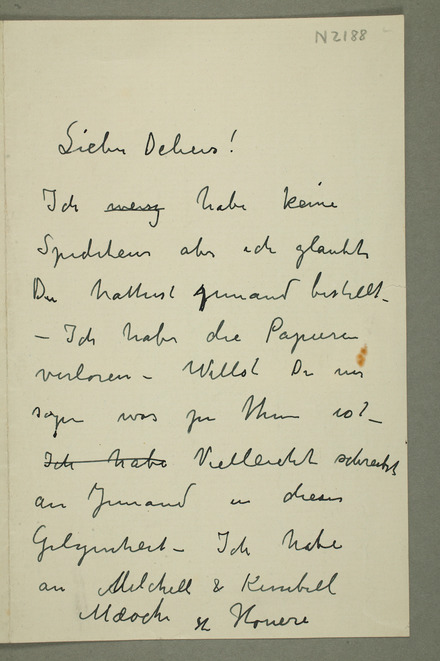 N2188
Lieber Delius!
Ich habe keine
aber ich glaubte
Du hattest Jemand bestellt –
– Ich habe die Papieren
verloren – Willst Du mir
sagen was zu thun ist –
Ich habe Vielleicht schreibst
an Jemand in dieser
Gelegenheit – Ich habe
an Mitchell & Kimbell
St Honoré